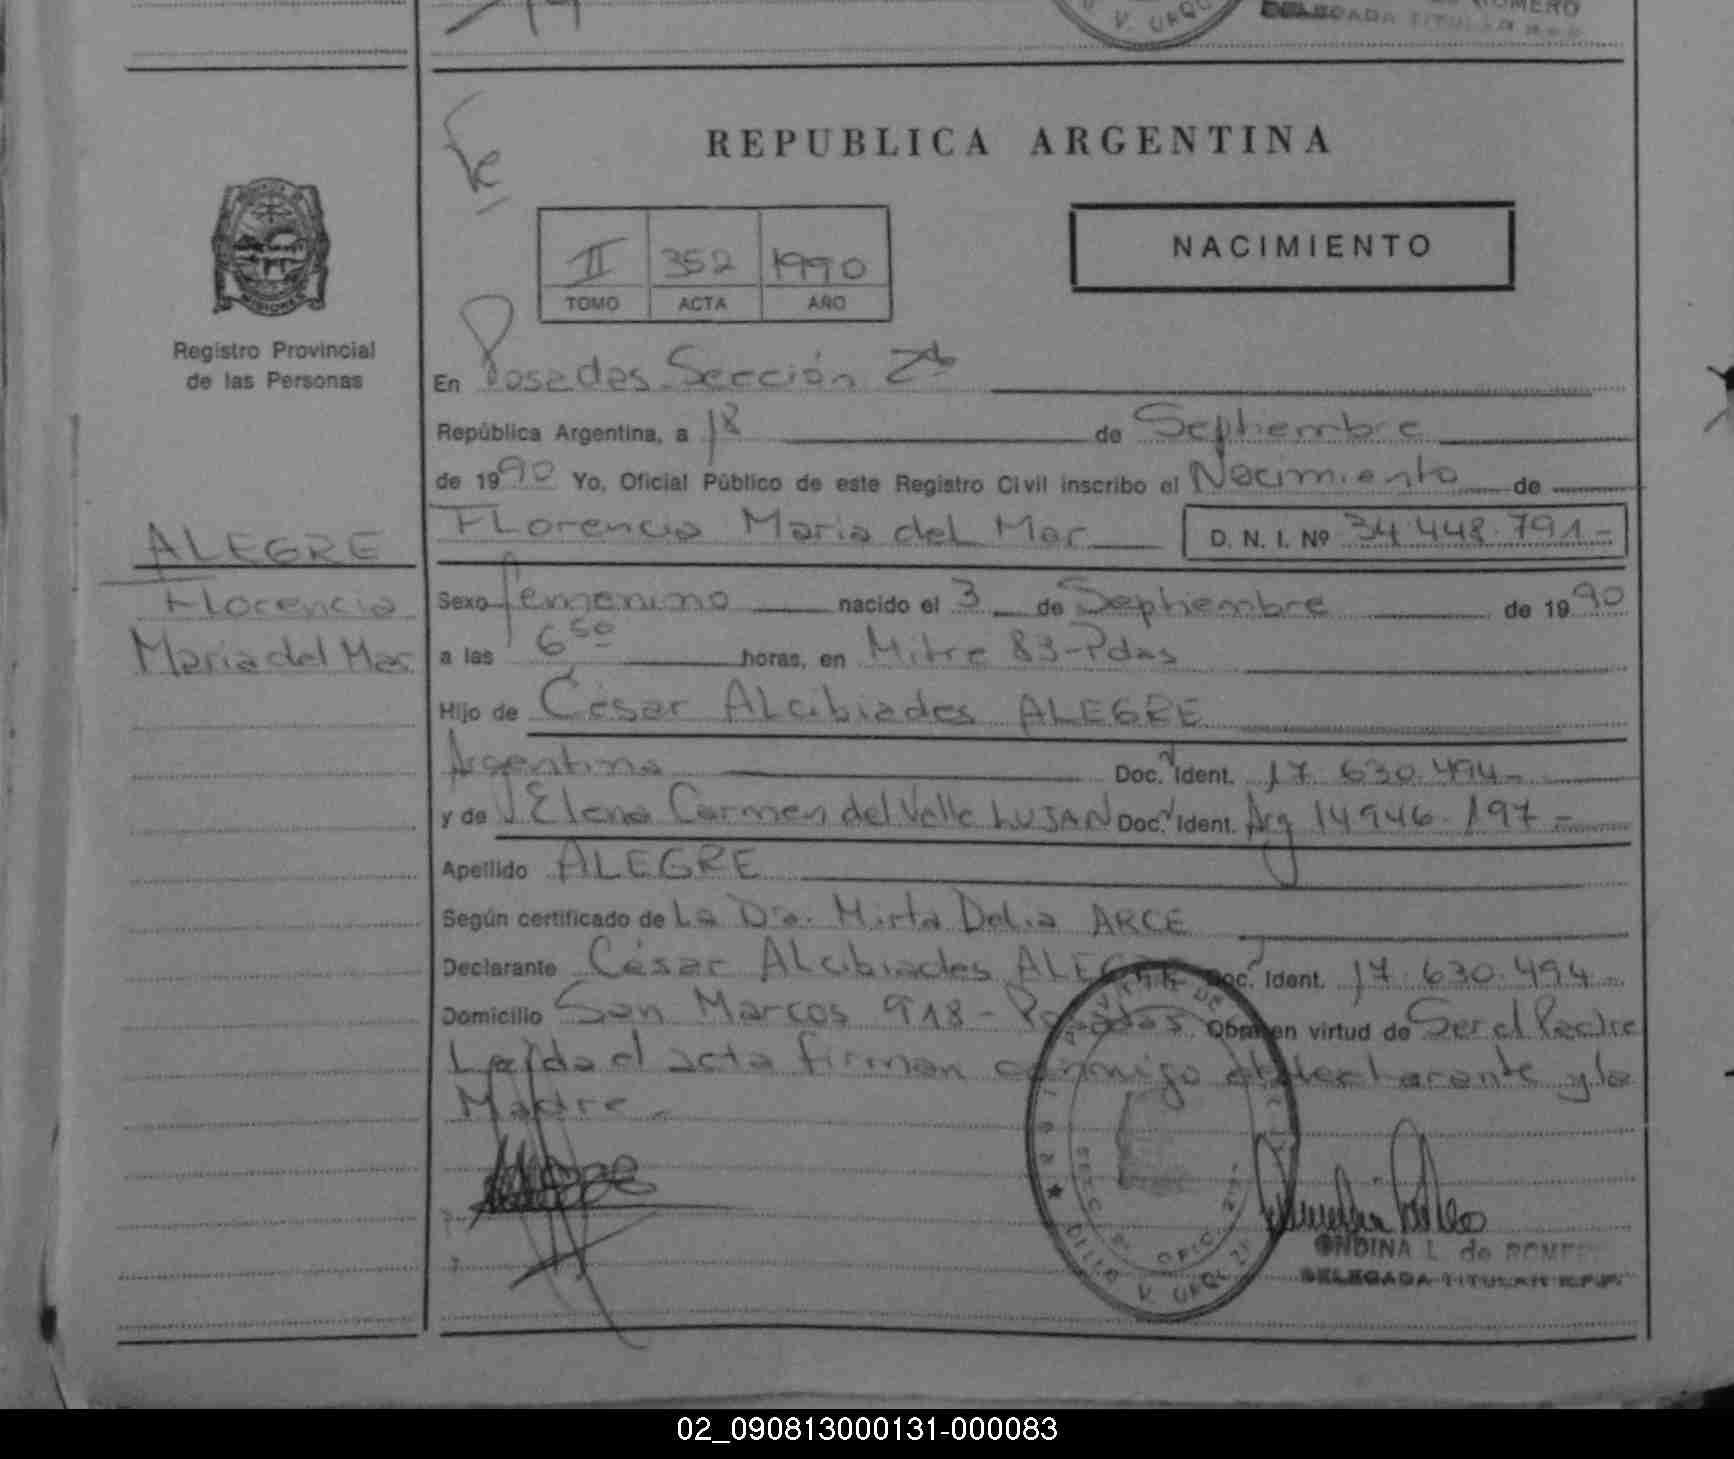 ROMERO
DELEGADA TITULAR R.P.P.
V. URQ
REPUBLICA ARGENTINA
NACIMIENTO
II 352 1990
TOMO ACTA AÑO
MISIONES
Registro Provincial
de las Personas
En Posadas Sección 7ª
República Argentina, a 18 de Septiembre
de 1990 Yo, Oficial Público de este Registro Civil inscribo el Nacimiento de
Florencia Maria del Mar D. N. I. Nº 34.448.791-
ALEGRE
Florencia
Maria del Mar
Sexo femenino nacido el 3 de Septiembre de 1990
a las 6 50 horas, en Mitre 83-Pdas
Hijo de César Alcibiades ALEGRE
Argentino Doc. Ident. 17.630.494-
y de Elena Carmen del Valle LUJAN Doc. Ident. Arg 14946.197-
Apellido ALEGRE
Según certificado de La Dra. Mirta Delia ARCE
Declarante César Alcibiades ALEGRE Doc. Ident. 17.630.494-
Domicilio San Marcos 918- Posadas Obra en virtud de Ser el Padre
Leída el acta firman conmigo el declarante y la
Madre-
ONDINA L. de ROMERO
DELEGADA TITULAR R.P.P.
02_090813000131-000083